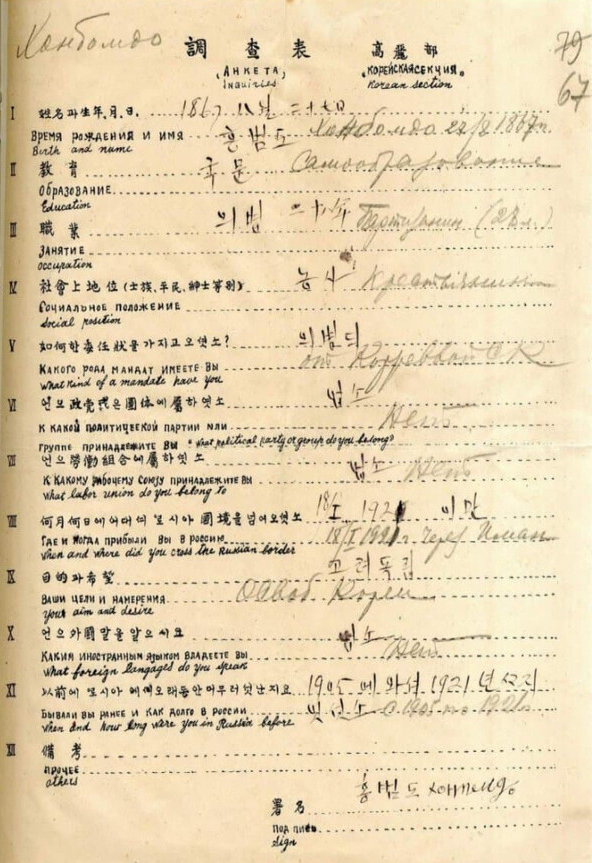 Ханбомдо
79
67
調查表 高麗部
(АНКЕТА) «КОРЕЙСКАЯ СЕКЦИЯ»
Inquiries Korean section
I 姓名과生年,月,日. 1867 八월 二十七日
ВРЕМЯ РОЖДЕНИЯ И ИМЯ 홍범도 Ханбомдо 1867г.
Birth and name
II 教育 국문 Самообразование
ОБРАЗОВАНИЕ
Education
III 職業 의병 二十年 Партизанин
ЗАНЯТИЕ
occupation
IV 社會上地位 (士族,平民,紳士等別) 농사
СОЦИАЛЬНОЕ ПОЛОЖЕНИЕ
Social position
V 如何한委任狀을가지고오엿소?
КАКОГО РОДА МАНДАТ ИМЕЕТЕ ВЫ от
what kind of a mandate have you
VI 언으政党或은團体에屬하엿소 업소
К КАКОЙ ПОЛИТИЦЕСКОЙ ПАРТИИ ИЛИ Нет
ГРУППЕ ПРИНАДЛЕЖИТЕ ВЫ "what political party or group do you belong"
VII 언으勞働組合에屬하엿소 업소 Нет
К КАКОМУ РАБОЧЕМУ СОЮЗУ ПРИНАДЛЕЖИТЕ ВЫ
what labor union do you belong to
VIII 何月何日에어대서로시아國境을넘어오엿소 18 1921 이만
ГДЕ И КОГДА ПРИБЫЛИ ВЫ В РОССИЮ 18/I 1921 г через Иман
when and where did you cross the Russian border
IX 目的과希望 고려독립
ВАШИ ЦЕЛИ И НАМЕРЕНИЯ Освоб Кореи
your aim and desire
X 언으外國말을알으시요 업소
КАКИМ ИНОСТРАННЫМ ЯЗЫКОМ ВЛАДЕЕТЕ ВЫ Нет
what foreign langages do you speak
XI 以前에로시아에예오래동안머무러잇난지요 1905에와서 1921년까지
БЫВАЛИ ВЫ РАНЕЕ И КАК ДОЛГО В РОССИИ 잇섯소 с 1905 по 1921г
when and how long were you in Russia before
XII 備考
ПРОЧЕЕ
others
홍범도
署名
ПОДПИСЬ
Sign